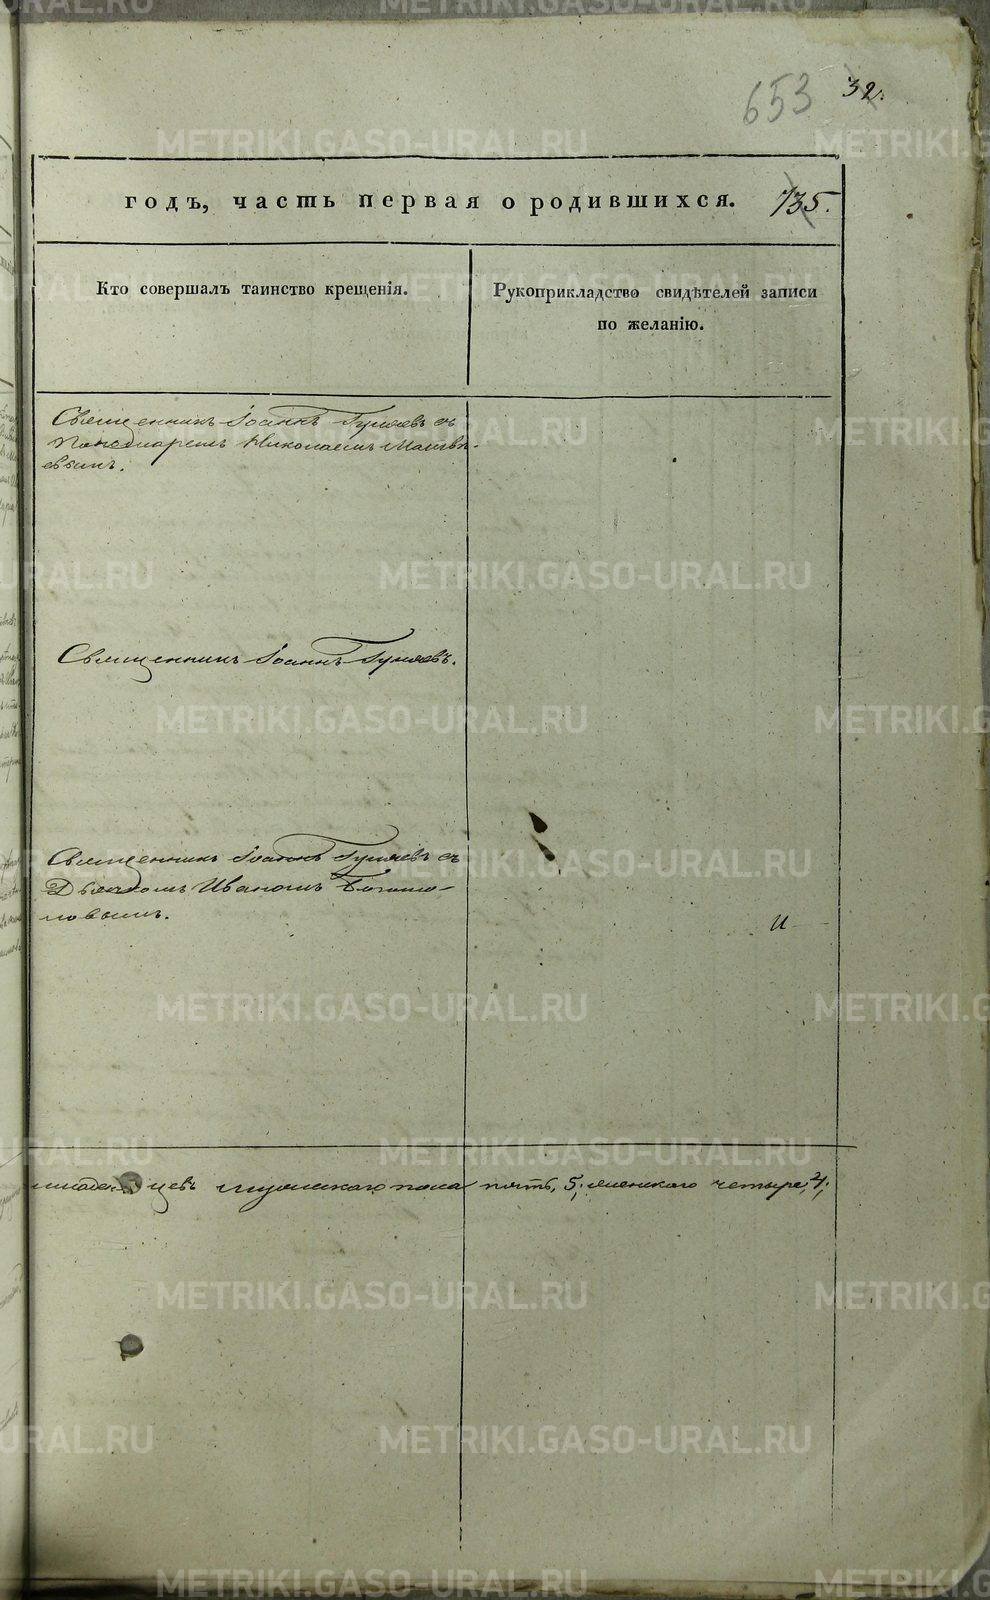 653 32.
годъ, часть первая о родившихся. 735.
Кто совершалъ таинство крещенія.
Рукоприкладство свидѣтелей записи
по желанію.
Священникъ Іоаннъ Гуляевъ съ
Пономаремъ Николаемъ Матвѣ-
евымъ.
Священникъ Іоаннъ Гуляевъ.
Священникъ Іоаннъ Гуляевъ съ
Дьячкомъ Иваномъ
ловымъ.
и
младенцевъ мужескаго пола пять, 5; женскаго четыре, 4;
METRIKI.GASO-URAL.RU